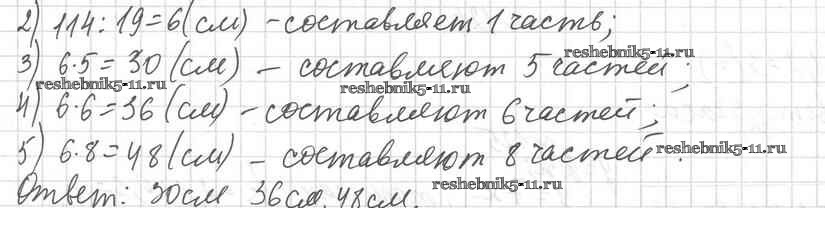 2) 114 : 19 = 6 (см) - составляет 1 часть;
reshebnik5-11.ru
3) 6·5 = 30 (см) – составляют 5 частей;
reshebnik5-11.ru reshebnik5-11.ru
4) 6·6 = 36 (см) – составляют 6 частей;
5) 6·8 = 48 (см) – составляют 8 частей.
reshebnik5-11.ru
Ответ: 30см 36см. 48см.
reshebnik5-11.ru